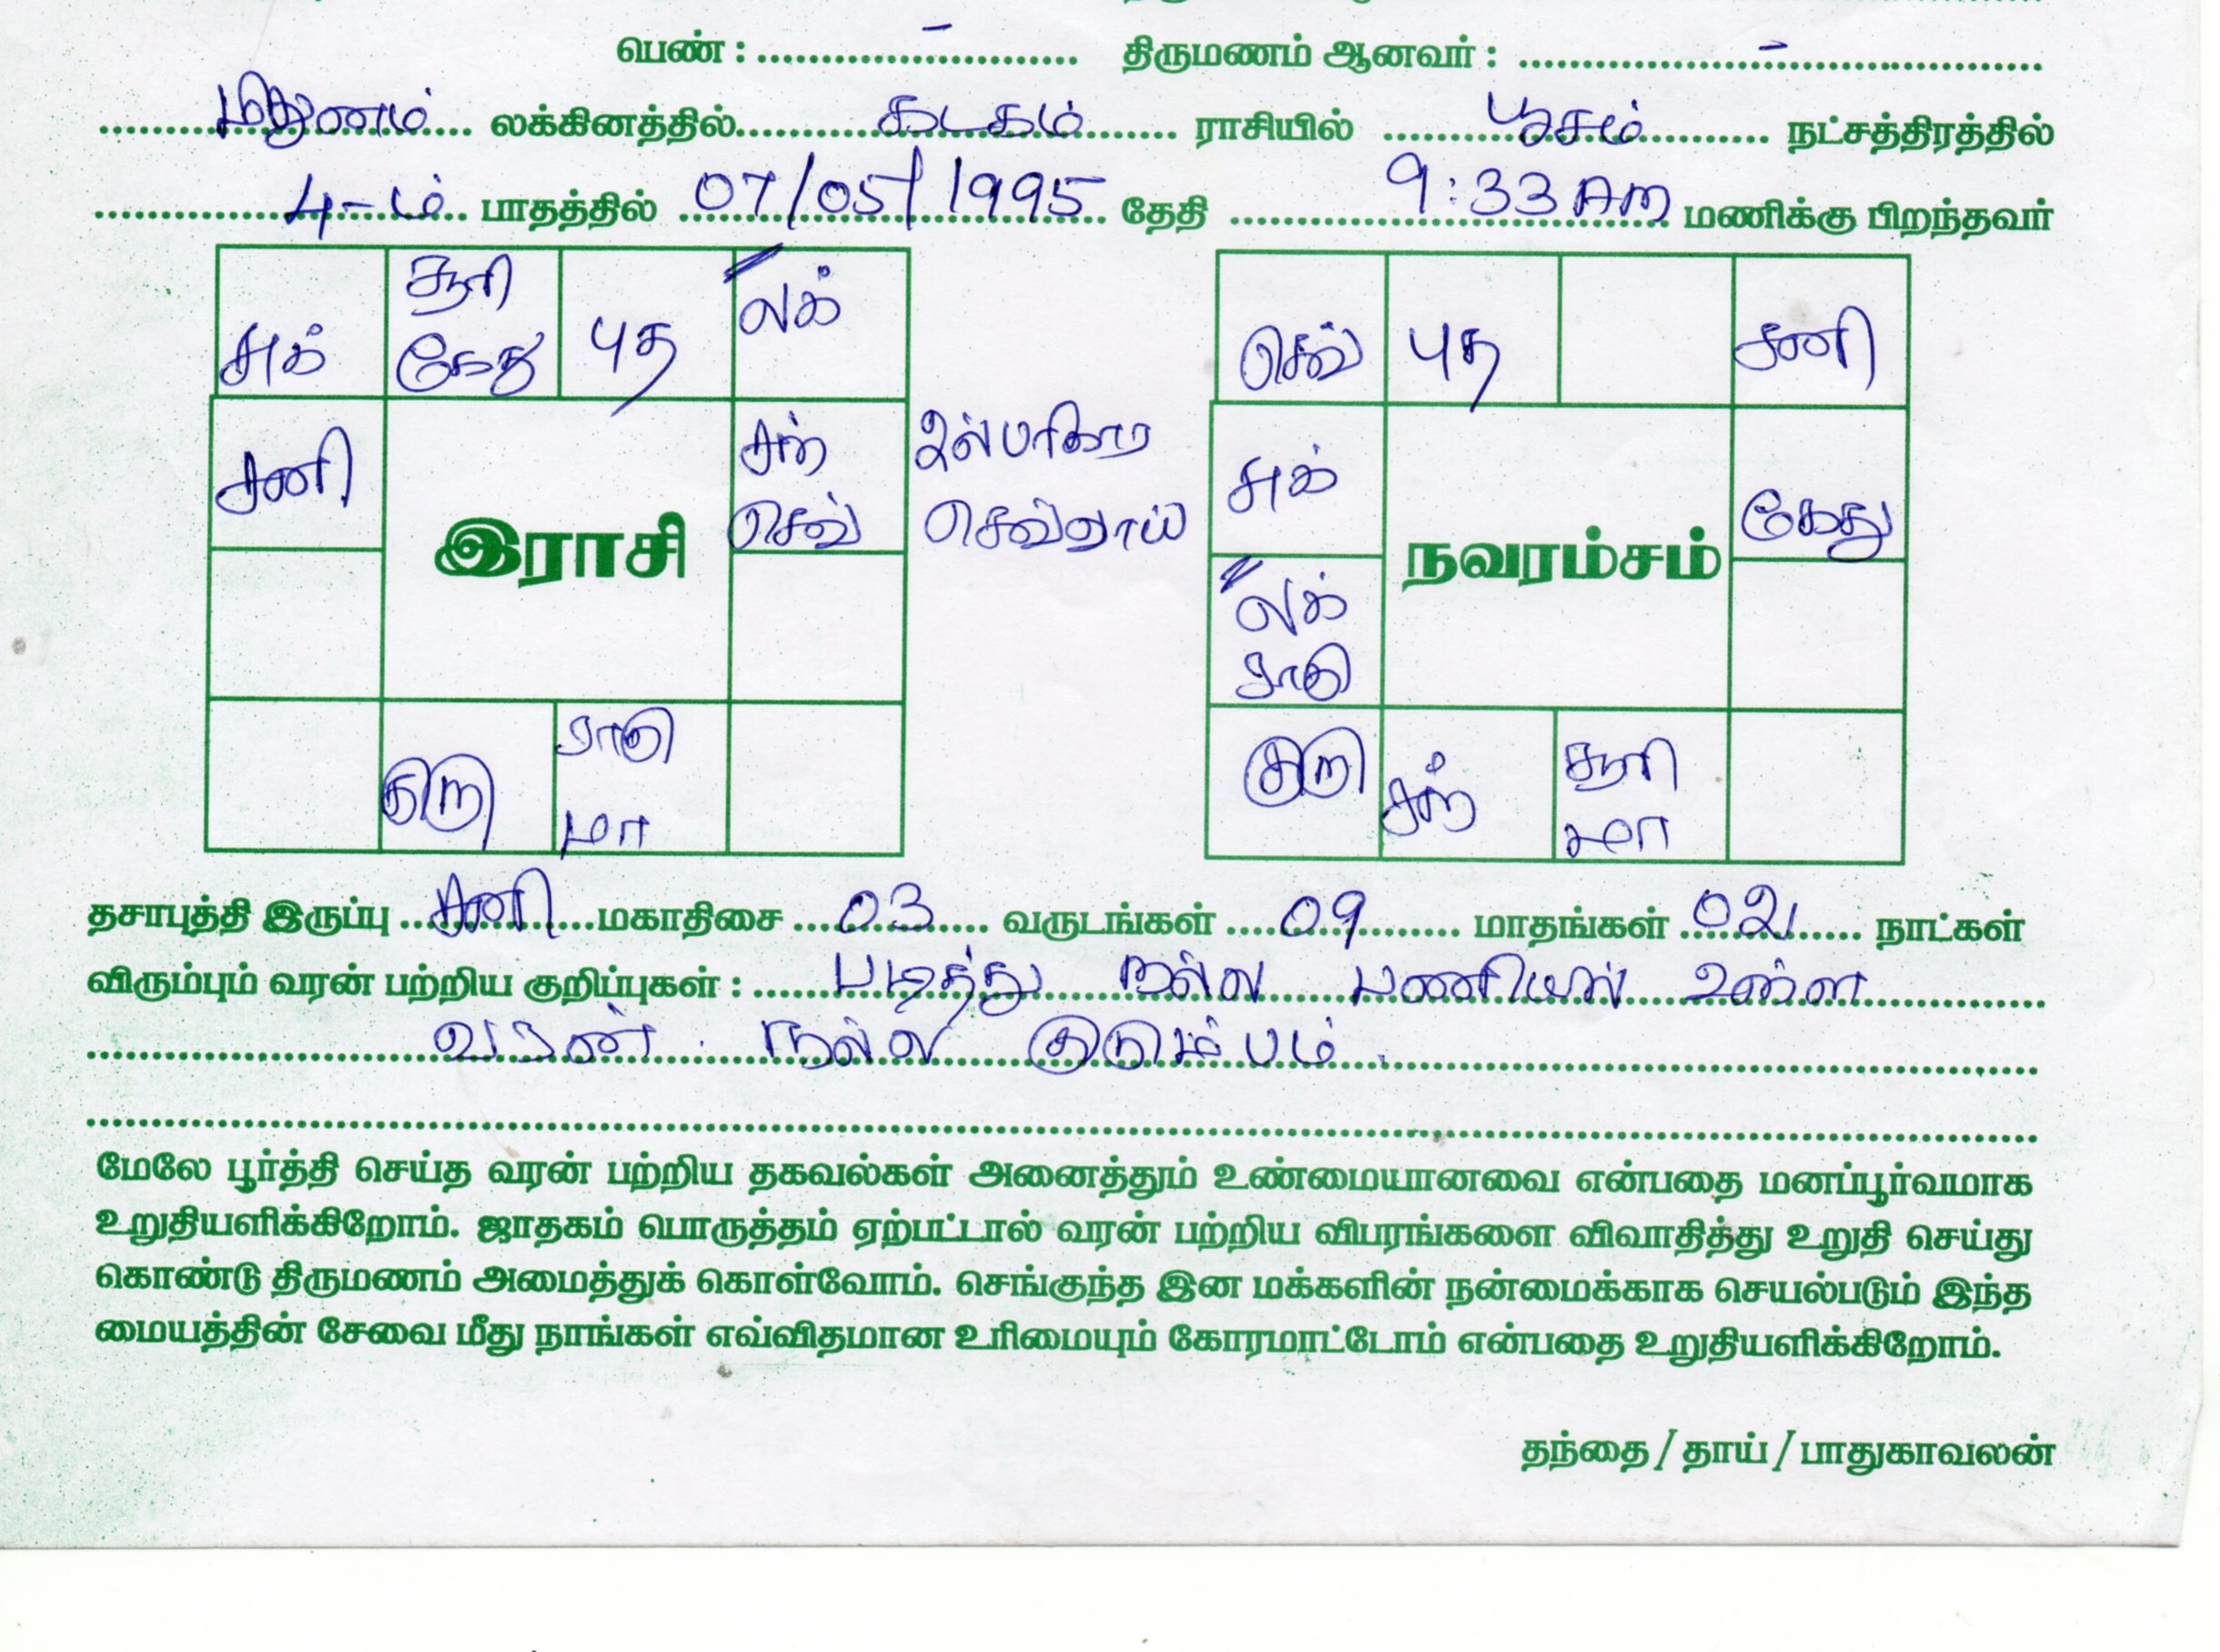 பெண் : - திருமணம் ஆனவர் : -
மிதுனம் லக்கினத்தில் கடகம் ராசியில் பூசம் நட்சத்திரத்தில்
4-ம் பாதத்தில் 07/05/1995 தேதி 9:33 Am மணிக்கு பிறந்தவர்
சுக் சூரி கேது புத லக்
சனி சந் செவ் பரிகார செவ்வாய்
இராசி
குரு ராகு மா
செவ் புத சனி
சுக் கேது
நவரம்சம்
லக் ராகு
குரு சந் சூரி மா
தசாபுத்தி இருப்பு சனி மகாதிசை 03 வருடங்கள் 09 மாதங்கள் 02 நாட்கள்
விரும்பும் வரன் பற்றிய குறிப்புகள் : படித்து நல்ல பணியில் உள்ள
வரன். நல்ல குடும்பம்.
மேலே பூர்த்தி செய்த வரன் பற்றிய தகவல்கள் அனைத்தும் உண்மையானவை என்பதை மனப்பூர்வமாக
உறுதியளிக்கிறோம். ஜாதகம் பொருத்தம் ஏற்பட்டால் வரன் பற்றிய விபரங்களை விவாதித்து உறுதி செய்து
கொண்டு திருமணம் அமைத்துக் கொள்வோம். செங்குந்த இன மக்களின் நன்மைக்காக செயல்படும் இந்த
மையத்தின் சேவை மீது நாங்கள் எவ்விதமான உரிமையும் கோரமாட்டோம் என்பதை உறுதியளிக்கிறோம்.
தந்தை / தாய் / பாதுகாவலன்